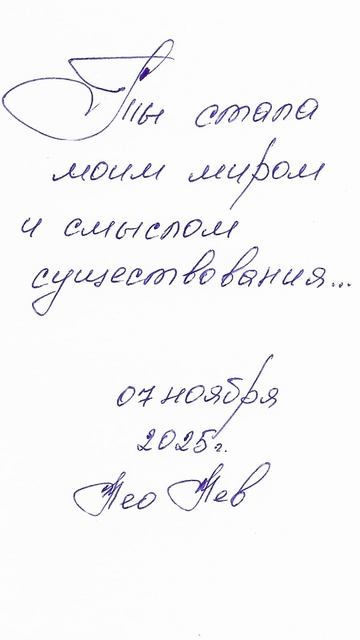 Ты стала
моим миром
и смыслом
существования...
07 ноября
2025г.
Нео Лев